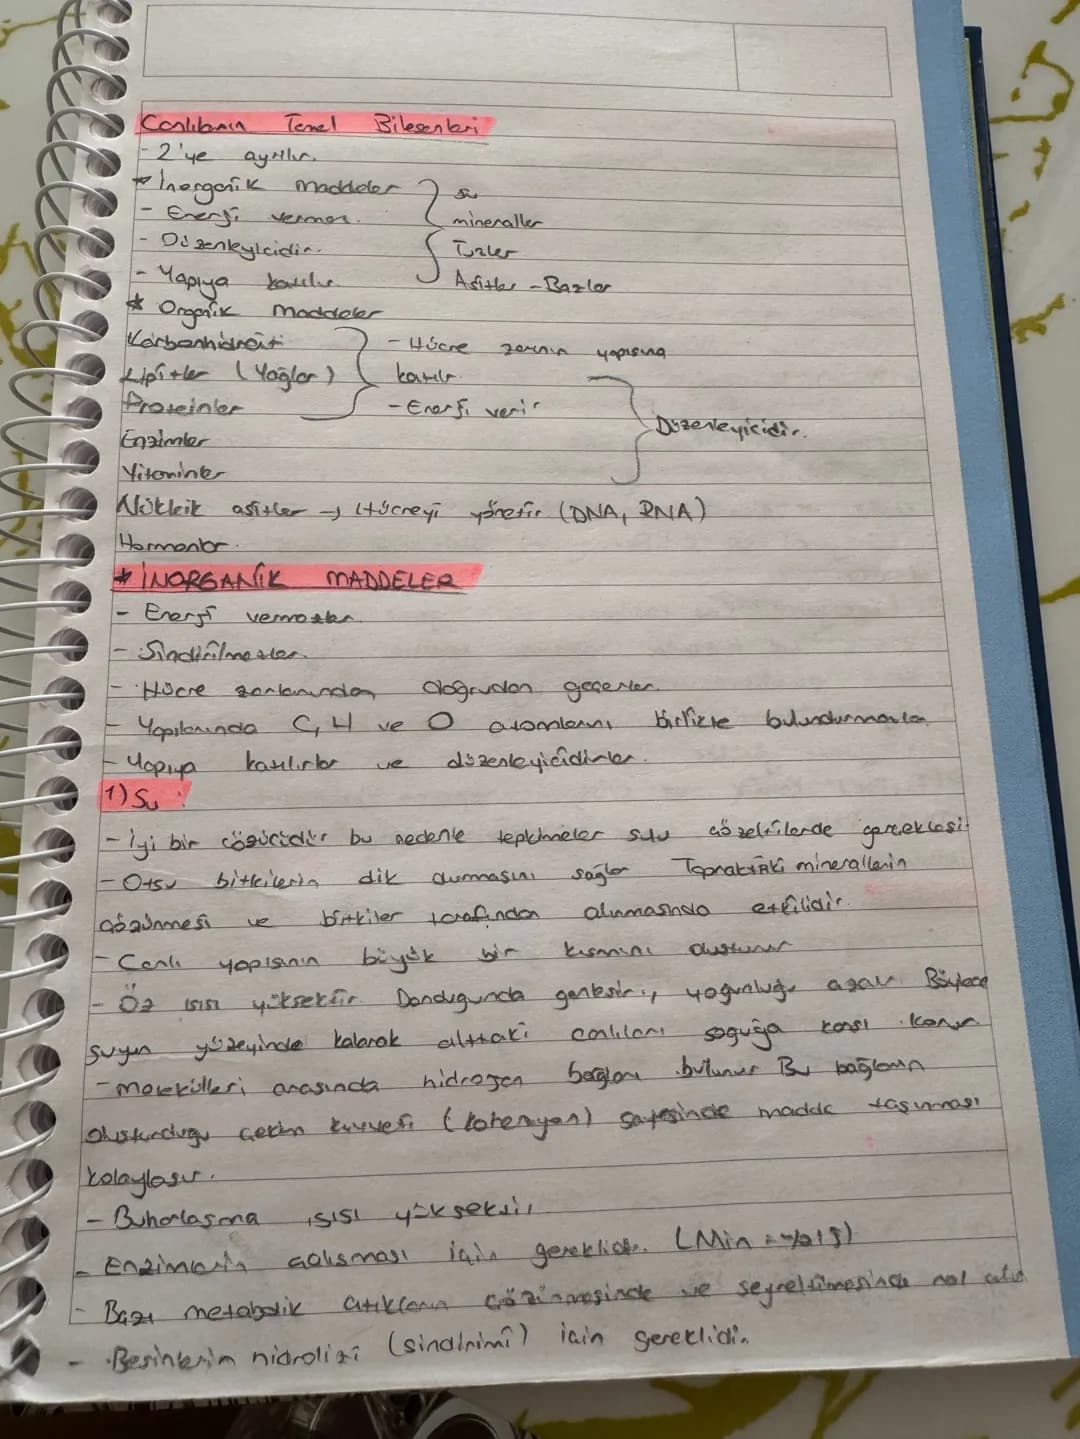 Canlıların Temel Bileşenleri
- 2'ye ayrılır.
* İnorganik Maddeler
su
- Enerji vermez.
mineraller
- Düzenleyicidir.
Tuzlar
- Yapıya katılır
Asitler - Bazlar
* Organik maddeler
Karbonhidrat
- Hücre zarının yapısına
Lipitler (Yağlar)
katılır
Proteinler
- Enerji verir
Düzenleyicidir.
Enzimler
Vitaminler
Nükleik asitler → Hücreyi yönetir (DNA, RNA)
Hormonlar.
* İNORGANİK MADDELER
- Enerji vermezler.
- Sindirilmezler.
- Hücre zarlarından doğrudan geçerler.
- Yapılarında C, H ve O atomlarını birlikte bulundurmazlar
- Yapıya katılırlar ve düzenleyicidirler.
1) Su :
- İyi bir çözücüdür bu nedenle tepkimeler sulu çözeltilerde gerçekleşir
- Otsu bitkilerin dik durmasını sağlar Topraktaki minerallerin
çözünmesi ve bitkiler tarafından alınmasında etkilidir.
- Canlı yapısının büyük bir kısmını oluşturur
- Öz ısısı yüksektir. Donduğunda genleşir, yoğunluğu azalır. Böylece
suyun yüzeyinde kalarak alttaki canlıları soğuğa karşı korur.
- molekülleri arasında hidrojen bağları bulunur Bu bağların
oluşturduğu çekim kuvveti (kohezyon) sayesinde madde taşınması
kolaylaşır.
- Buharlaşma ısısı yüksektir
- Enzimlerin çalışması için gereklidir. (Min = %15)
- Bazı metabolik atıkların çözünmesinde ve seyreltilmesinde rol alır
- Besinlerin hidrolizi (sindirimi) için gereklidir.